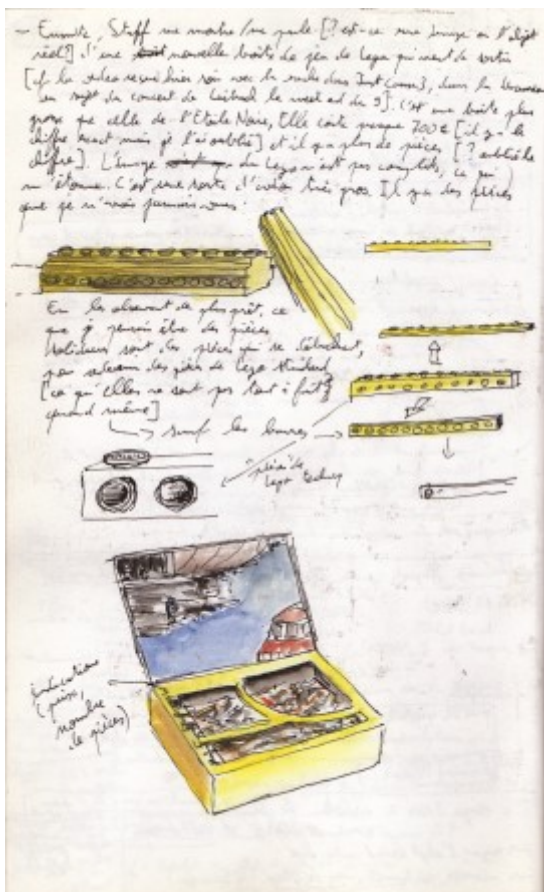 → Ensuite, Stuff me montre/me parle [? est-ce une image ou l'objet
réel?] d'une nouvelle boîte de jeu de Lego qui vient de sortir
[cf la video reçue hier soir avec la dans Just Cause 3, dans la
au sujet du concert de Laibach le week end du 9]. C'est une boîte plus
grosse que celle de l'Etoile Noire, Elle coûte presque 700 € [il y a le
chiffre exact mais je l'ai oublié] et il y a plus de pièces [? oublié le
chiffre]. L'image du Lego n'est pas complète, ce qui
m'étonne. C'est une sorte d'avion très gros. Il y a des pièces
que je n'avais jamais vues :
En les observant de plus prêt, ce
que je pensais être des pièces
sont des pièces qui se détachent,
pour redevenir des pièces de Lego standard
[ce qu'elles ne sont pas tout à fait
quand même]
↳ sauf les barres →
pièces de
Lego technic
indications
(prix,
nombre
de pièces)